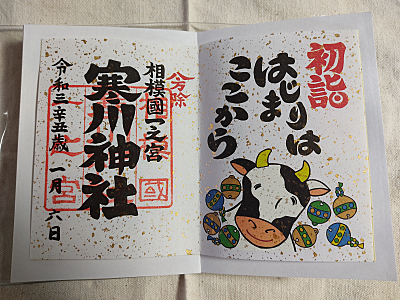 初詣
はじまりは
ここから
八方除
相模國一之宮
寒川神社
令和三辛丑歳 一月六日